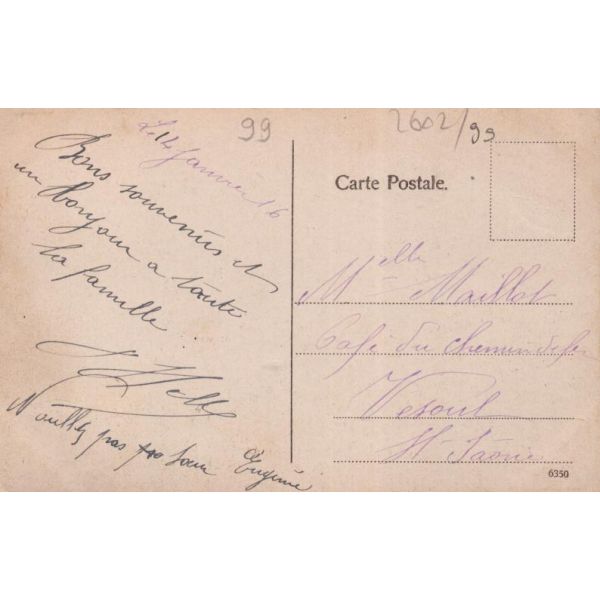 99
2602/99
Le 14 Janvier 16
Bons souvenirs et
un bonjour a toute
la famille
N'oubliez pas Eugénie
Carte Postale.
Melle Maillot
Café du chemin de fer
Vesoul
Hte Saône
6350